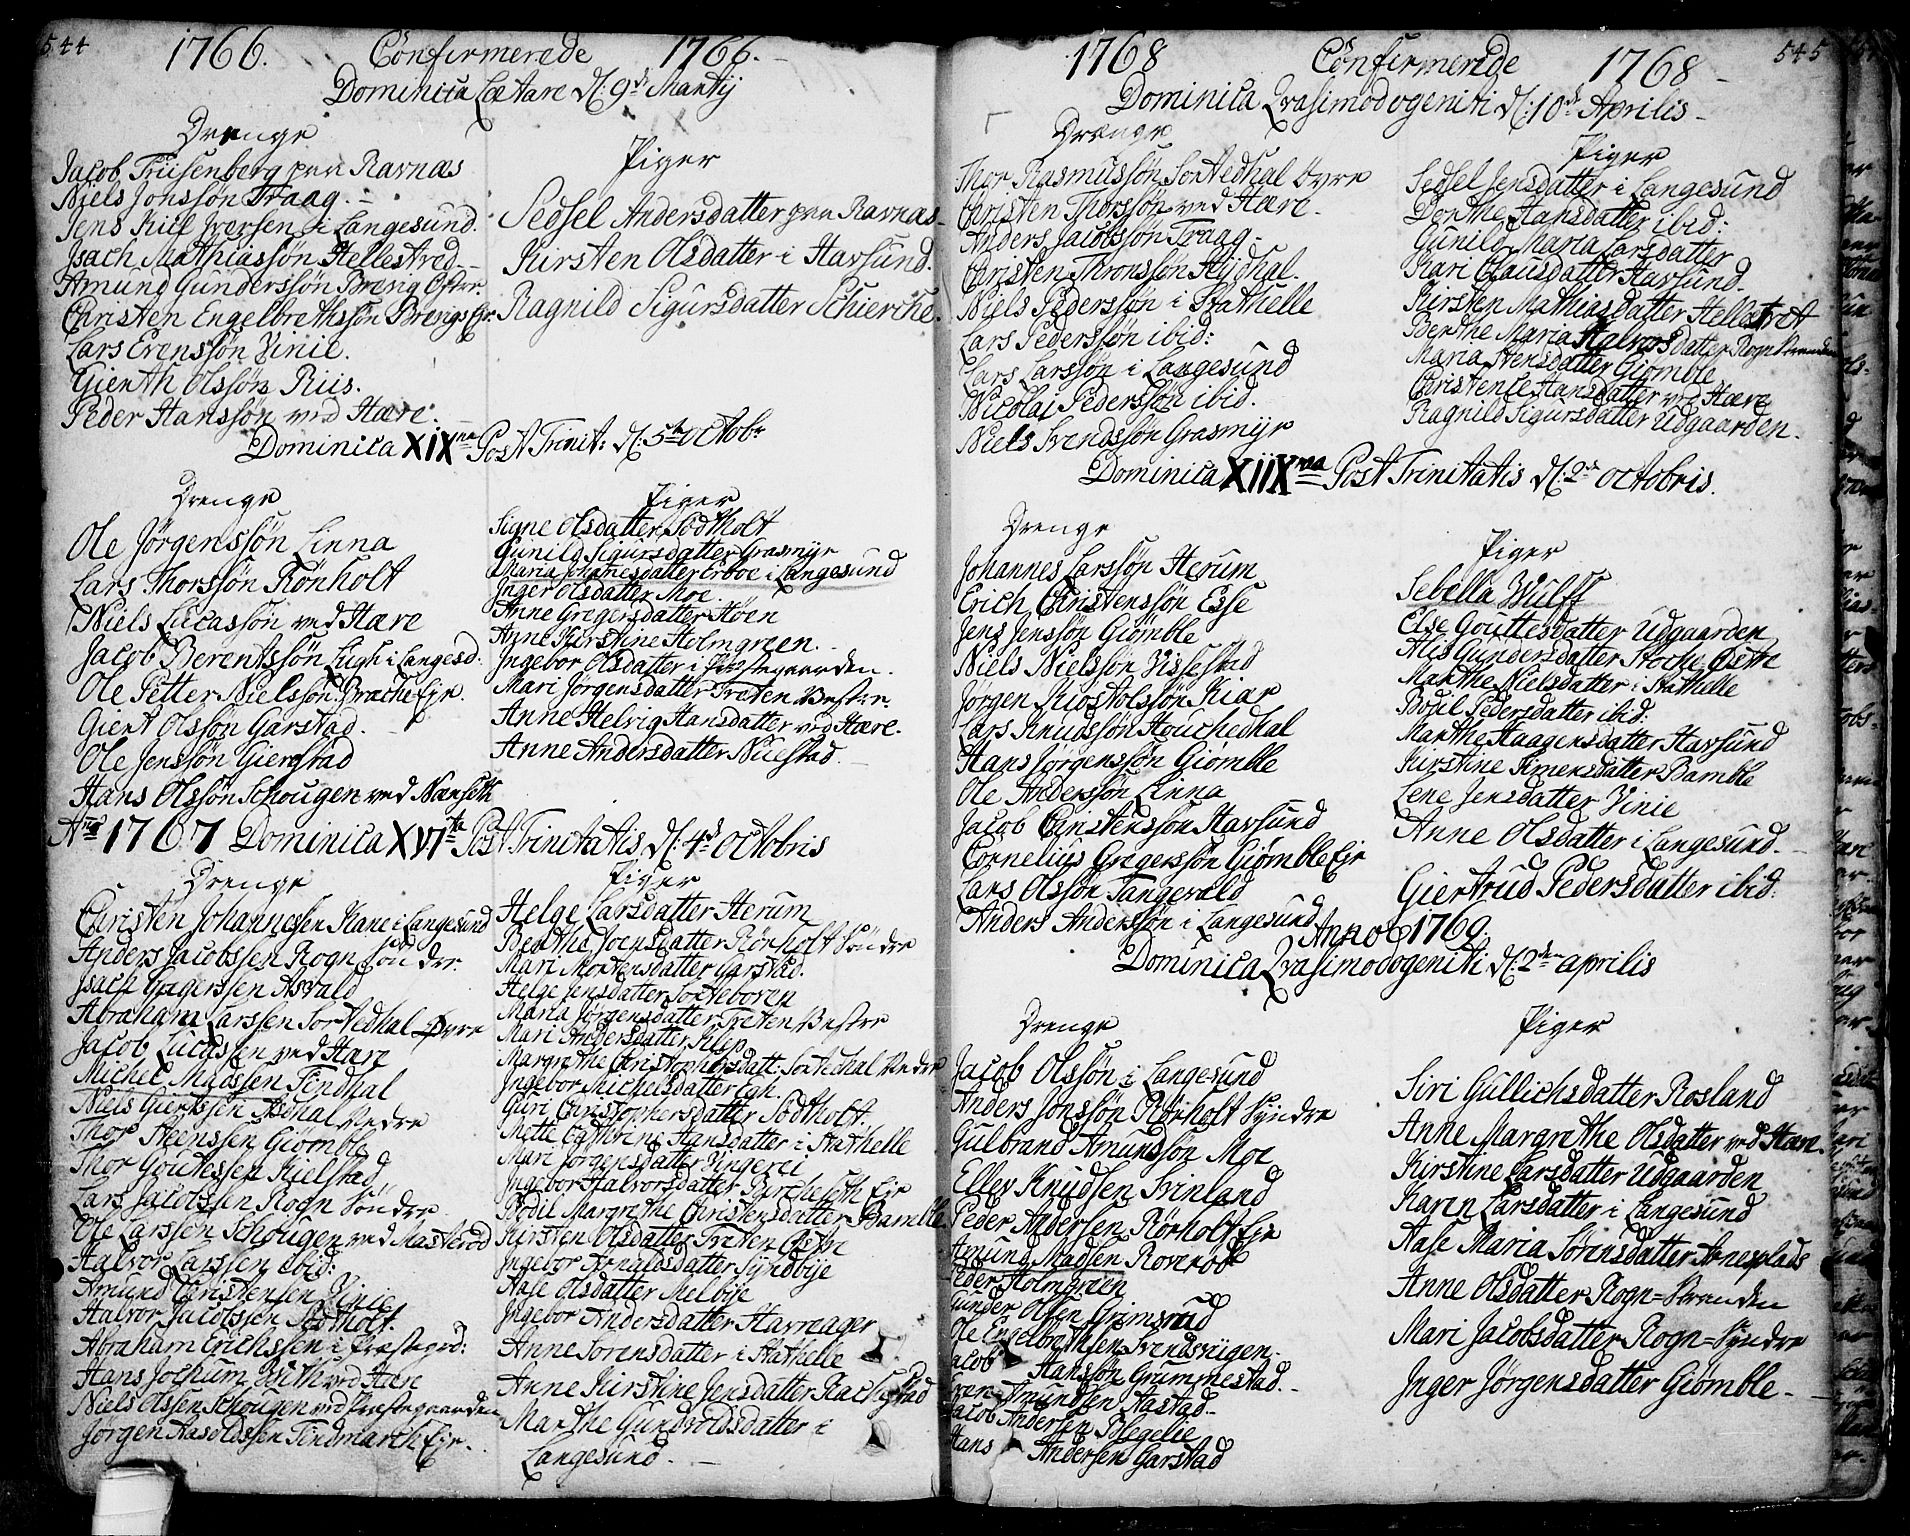 544
1766. Confirmerede 1766.
Dominica Lætare d: 9de Martij
Drenge
Jacob Friisenberg paa Ravnæs
Niels Jonssøn Traag.
Jens Kiil Iversen i Langesund.
Isach Mathiassøn Hellestred
Amund Gunderssøn Breng Ofter
Christen Engelbrethssøn Brengs Eje.
Lars Evenssøn Vinie.
Gierth Olssøn Riis.
Peder Hanssøn ved Hære.
Piger
Sedsel Andersdatter paa Ravnæs.
Kirsten Olsdatter i Havsund.
Ragnild Sigursdatter Schierche.
Dominica XIXna Post Trinit: d: 5te octobr
Drenge
Ole Jørgenssøn Linna
Lars Thorssøn Rönholt
Niels Lucassøn ved Hære
Jacob Berentssøn Lugh i Langesd.
Ole Petter Nielssøn Brache Eje.
Giert Olssøn Garstad.
Ole Jenssøn Gierestad
Hans Olssøn Schougen ved Næseth
Piger
Signe Olsdatter Södtholt
Gunild Sigursdatter Grasmyr
Maria Johanesdatter Erboe i Langesund
Inger Olsdatter Moe.
Anne Gregersdatter Høen
Anne Kirstine Holmgreen.
Ingebor Olsdatter i Præstegaarden.
Mari Jörgensdatter Traten Vestre.
Anne Helvig Hansdatter ved Hære.
Anne Andersdatter Nuestad.
Ano 1767 Dominica XVIta Post Trinitatis d: 4de octobris
Drenge
Christen Johannessen Hane i Langesund
Anders Jacobssen Rogn sönder.
Isach Gregerssen Asvald
Abraham Larssen Sortedhal Øvre
Jacob Lucassen ved Hære
Michel Madssen Findhal
Niels Giertssen Asdhal Nedre
Thor Steenssen Giømble
Thor Gouttessen Kielstad
Lars Jacobssen Rogn Söndre
Ole Larssen Schougen ved Masterød
Halvor Larssen ibid:
Amund Christensen Vinie
Halvor Jacobssen Södtholt.
Abraham Erichssen i Præstegrd:
Hans Jochum Rüth ved Hære
Niels Olssen Schougen ved Præstegaarden
Jørgen Aasoldssen Findmarch Eje.
Piger
Helge Larsdatter Herum
Berthe Joensdatter Rörholt Söndre
Mari Mortensdatter Garstad.
Helge Jensdatter Sorteboren
Maria Jørgensdatter Traten Vestre
Mari Andersdatter Klep.
Margrethe Christophersdatt: Sortedhal Nedre
Ingebor Michelsdatter Egh.
Guri Christophersdatter Södtholt.
Mette Cathrine Hansdatter i Stathelle
Mari Jørgensdatter Vingerei
Ingebor Halvorsdatter Bircheseth Eje
Bodil Margrethe Christensdatter Bamble
Kirsten Olsdatter Traten Østre
Ingebor Arnoldsdatter Syndbye
Aase Olsdatter Melbye
Ingebor Andersdatter Havreager
Anne Sorensdatter i Stathelle
Anne Kirstine Jensdatter
Marthe Gundvoldsdatter i
Langesund.
545
1768 Confirmerede 1768
Dominica Qvasimodogeniti d: 10de Aprilis
Drenge
Thor Rasmussøn Sortedhal Øvre
Christen Thorssøn ved Hære.
Anders Jacobssøn Traag
Christen Thronssøn Hydhal.
Niels Pederssøn i Stathelle
Lars Pederssøn ibid:
Lars Larssøn i Langesund
Nicolai Pederssøn ibid.
Niels Svendssøn Grasmyr
Piger
Sedsel Jensdatter i Langesund
Dorthe Hansdatter ibid:
Gunild Maria Larsdatter
Kari Clausdatter Havsund.
Kirsten Mathiasdatter Hellestret
Berthe Maria Halvorsdatter Rogn Stranden
Maria Stensdatter Giømble
Christence Hansdatter ved Hære
Ragnild Sigursdatter Udgaarden.
Dominica XIIXva Post Trinitatis d: 2de octobris.
Drenge
Johannes Larssøn Herum
Erich Christenssøn Esse
Jens Jenssøn Giømble
Niels Nielssøn Vissestad
Jørgen Kiostolssøn Kiær
Lars Knudssøn Houchedhal
Hans Jørgenssøn Giømble
Ole Anderssøn Linna
Jacob Christenssøn Havsund
Cornelius Gregerssøn Giømble Eje
Lars Olssøn Tangevald
Anders Anderssøn i Langesund
Piger
Sebella Wulff
Else Gouttesdatter Udgaarden
Alis Gundersdatter Stocke Østre
Marthe Nielsdatter i Stathelle
Bodil Pedersdatter ibid:
Marthe Haagensdatter Havsund
Kirstine Simensdatter Bamble
Lene Jensdatter Vinie
Anne Olsdatter i Langesund.
Giertrud Pedersdatter ibid.
Anno 1769.
Dominica Qvasimodogeniti d: 2den aprilis
Drenge
Jacob Olssøn i Langesund
Anders Jonssøn Rörholt Syndre
Gulbrand Amunssøn Moe
Eller Knudsen Svinland
Peder Andersen Rörholt Eje
Amund Madsen Ronrød
Peder Holmgreen
Gunder Olsen Grimsrud
Ole Engelbrethsen Svendsviigen.
Jacob Hanssøn Grummestad.
Even Amundsen Aastad.
Jacob Andersen Blegelie
Hans Andersen Garstad
Piger
Siri Gullichsdatter Rosland
Anne Margrethe Olsdatter ved Hære.
Kirstine Larsdatter Udgaarden
Karen Larsdatter i Langesund
Aase Maria Sørensdatter Arneplads
Anne Olsdatter Rogn=Stranden
Mari Jacobsdatter Rogn=Syndre
Inger Jörgensdatter Giømble.